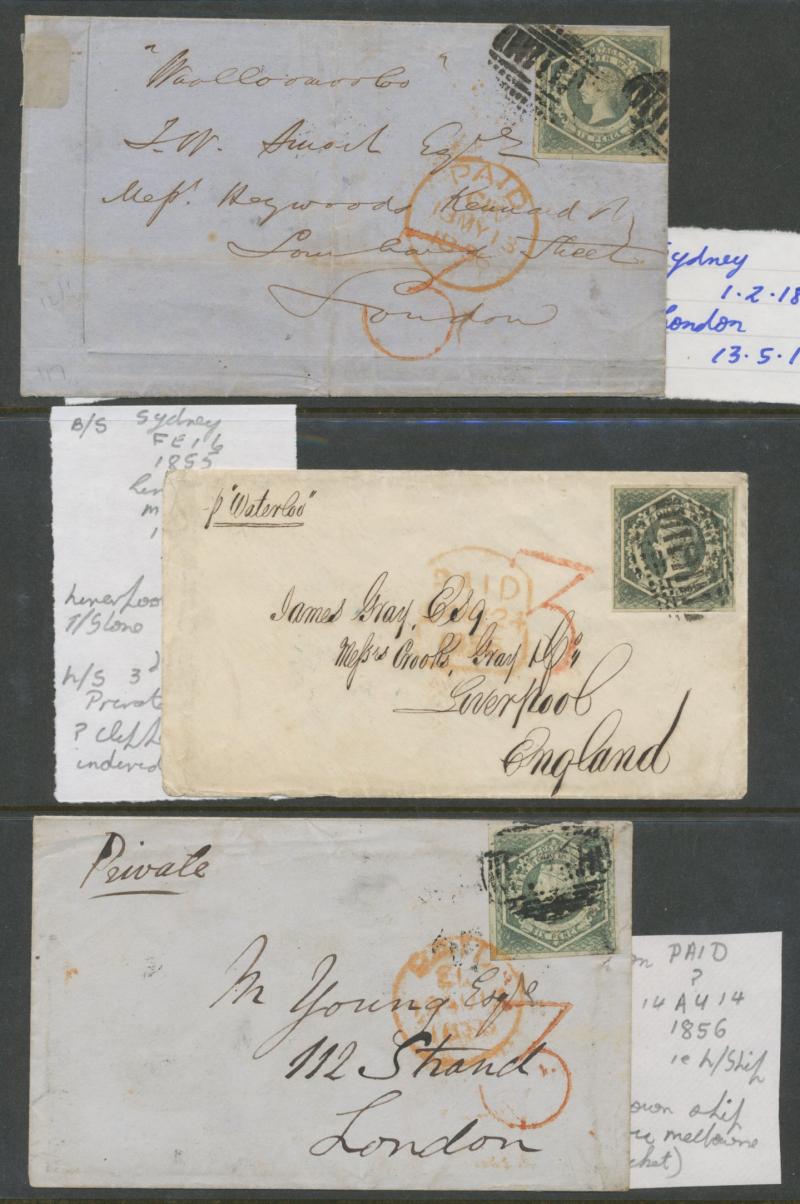 "Woolloomooloo"
T. W. Smart Esqre
Messrs Heywoods Kennard &
Lombard Street
London
PAID
13 MY 13
3
SIX PENCE
Sydney
1.2.18
London
13.5.1
B/S Sydney
FE 16
1855
Liverpoo
T/Stone
h/S 3d
Private
? Clipp
p "Waterloo"
PAID
24
3
James Gray, Esq
Messrs Crooks, Gray & Co
Liverpool
England
Private
M Young Esqre
112 Strand
London
3
SIX PENCE
on PAID
?
14 AU 14
1856
ie h/Ship
own ship
melbourne
ket)